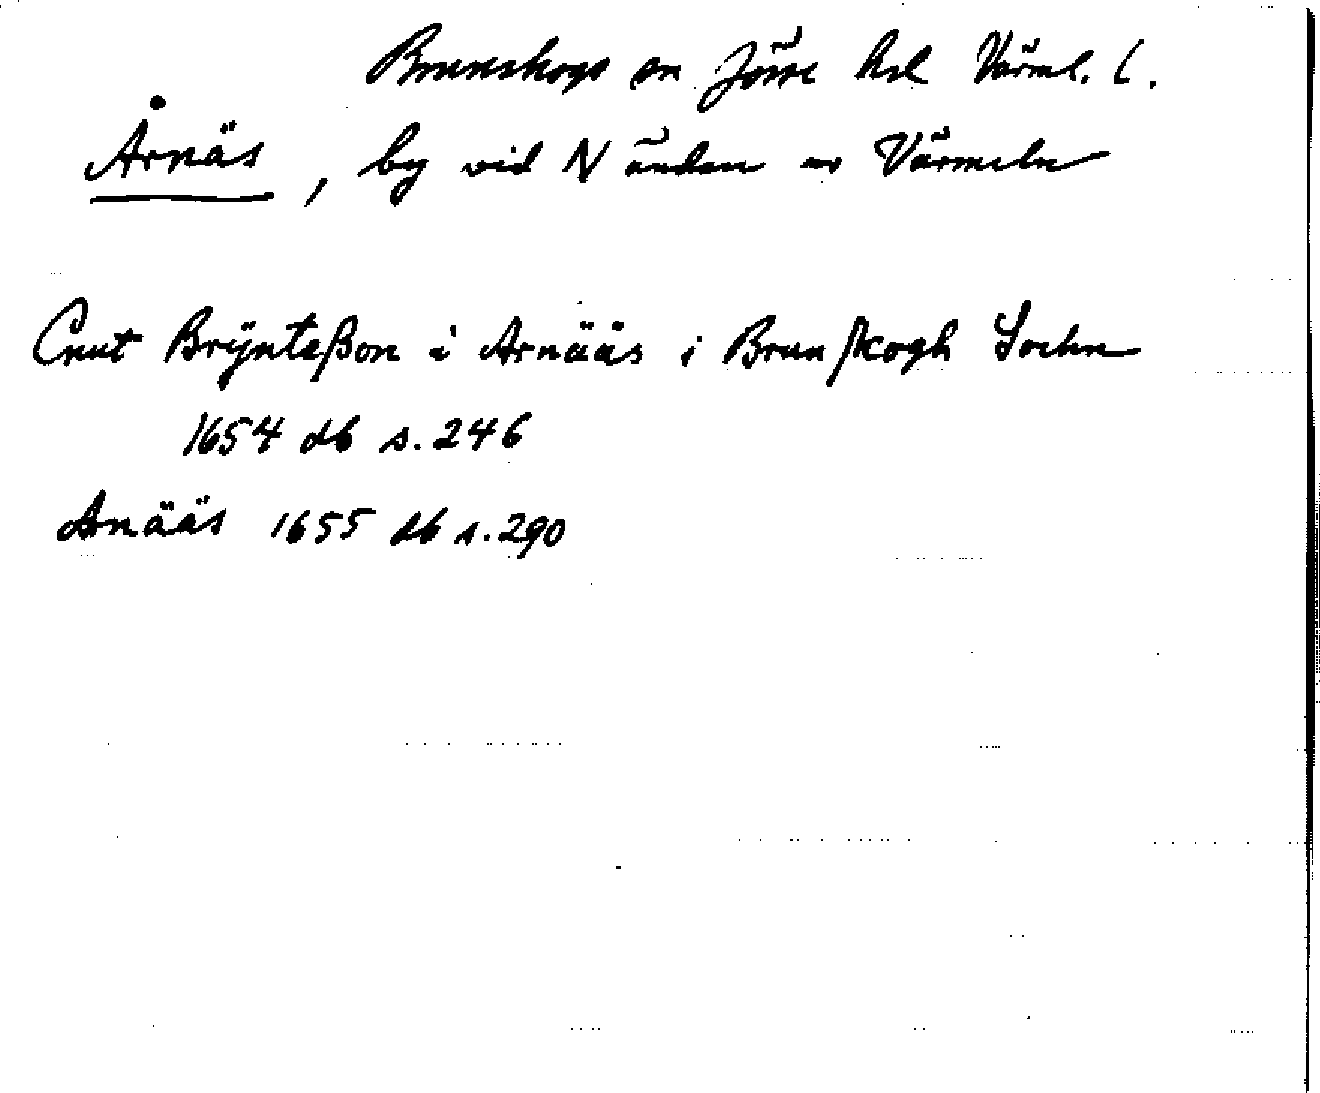 Brunskogs sn Jösse hd Värml. l.
Årnäs, by vid N änden av Värmeln
Cnut Brÿnteßon i Arnääs i Brunskogh Sochn
1654 db s. 246
Arnääs 1655 db s. 290